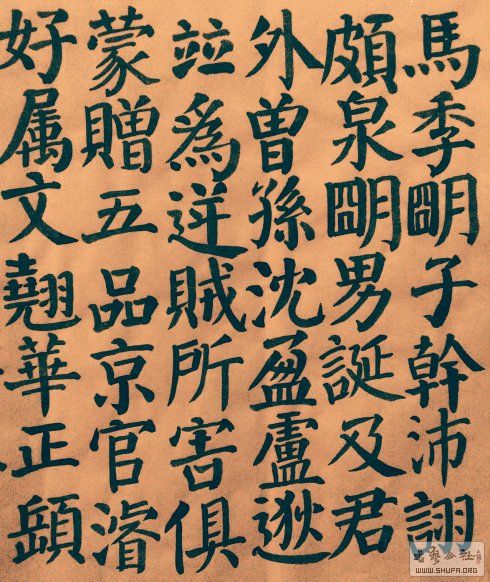 馬季朙子幹沛詡
頗泉朙男誕及君
外曾孫沈盈盧逖
竝爲逆賊所害俱
蒙贈五品京官濬
好属文翹華正頤
书艺公社
WWW.SHUFA.ORG